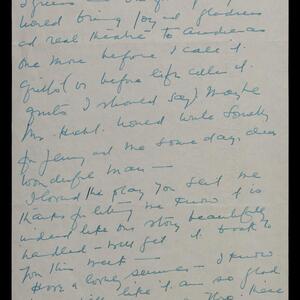 I guess
would bring joy and gladness
and real theatre to audiences
once more before I call it
quits (or before life calls it
quits I should say) Maybe
Mr. would write something
for Jenny and me some day, dear
wonderful man —
I loved the play you sent me
thanks for letting me know it is
indeed like our story beautifully
handled — will get it back to
you this week —
Have a lovely summer — I know
will like it. am so glad